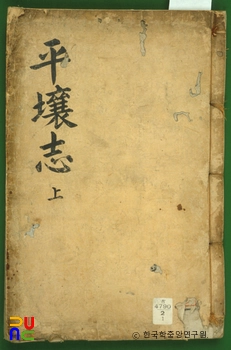 平壤志
上
4790
2
© 한국학중앙연구원